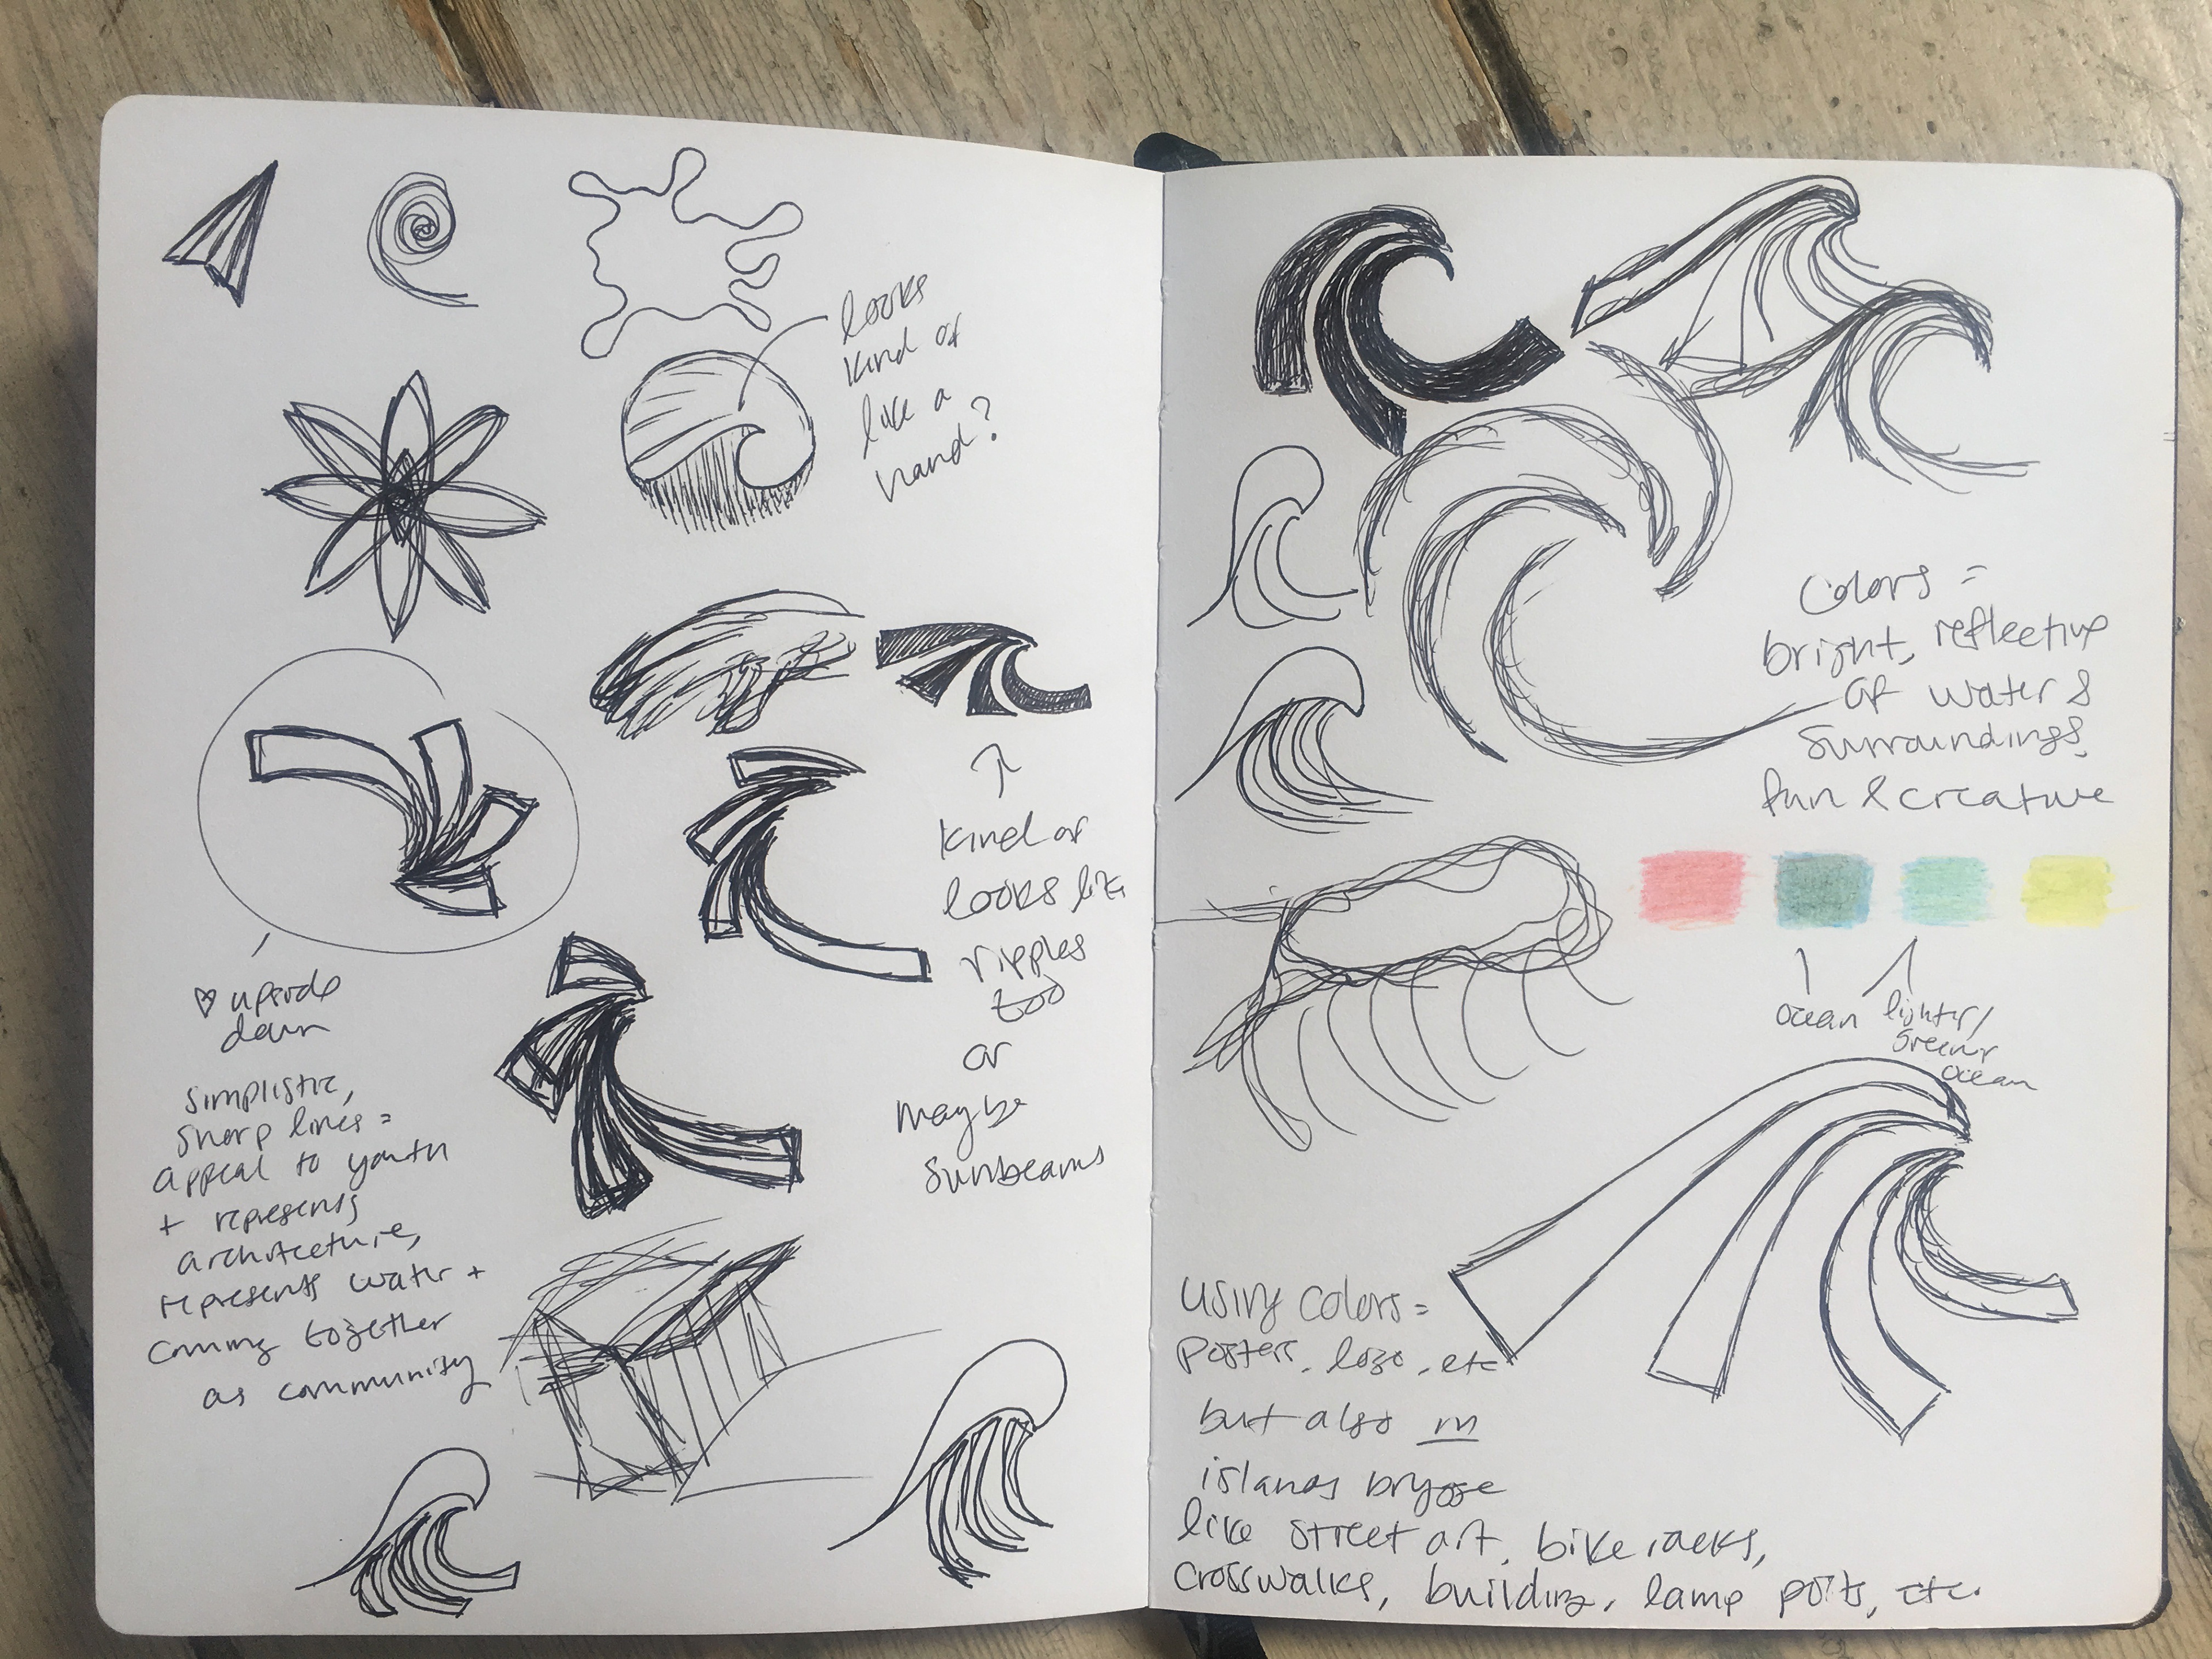 looks
kind of
like a
hand?
↗
kind of
looks like
ripples
too
or
maybe
sunbeams
♡ upside
down
simplistic,
sharp lines =
appeal to youth
+ represents
architecture,
represents water +
coming together
as community
Colors =
bright, reflective
of water &
surroundings,
fun & creative
ocean
lighter/
greener
ocean
using colors =
posters, logo, etc
but also in
islands brygge
like street art, bike racks,
crosswalks, building, lamp posts, etc.